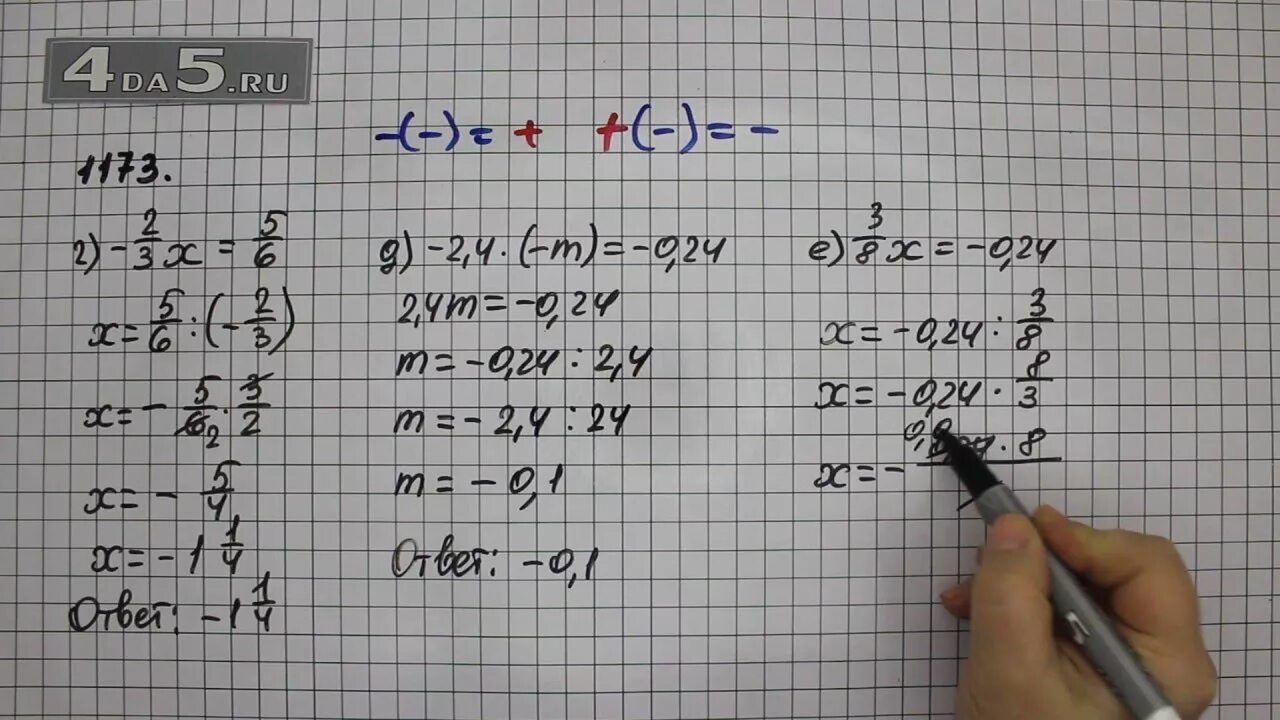 4DA5.RU
-(-) = + +(-) = -
1173.
г) -2/3 x = 5/6
x = 5/6 : (-2/3)
x = - 5/6 2 · 3/2
x = - 5/4
x = -1 1/4
Ответ: -1 1/4
д) -2,4 · (-m) = -0,24
2,4m = -0,24
m = -0,24 : 2,4
m = -2,4 : 24
m = -0,1
Ответ: -0,1
е) 3/8 x = -0,24
x = -0,24 : 3/8
x = -0,24 · 8/3
x = - · 8